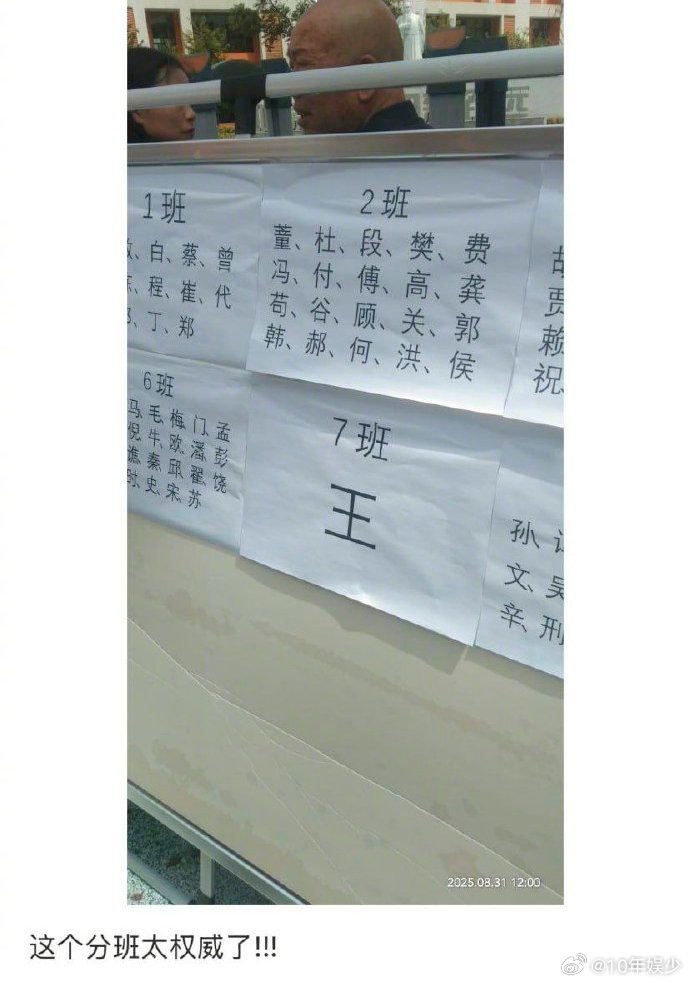 1班
白、蔡、曾
程、崔、代
丁、郑
2班
董、杜、段、樊、费
冯、付、傅、高、龚
苟、谷、顾、关、郭
韩、郝、何、洪、侯
胡
贾
赖
祝
6班
马、毛、梅、门、孟
倪、牛、欧、潘、彭
谯、秦、邱、翟、饶
时、史、宋、苏
7班
王
孙、
文、吴
辛、刑
2025.08.31 12:00
这个分班太权威了!!!
@10年娱少